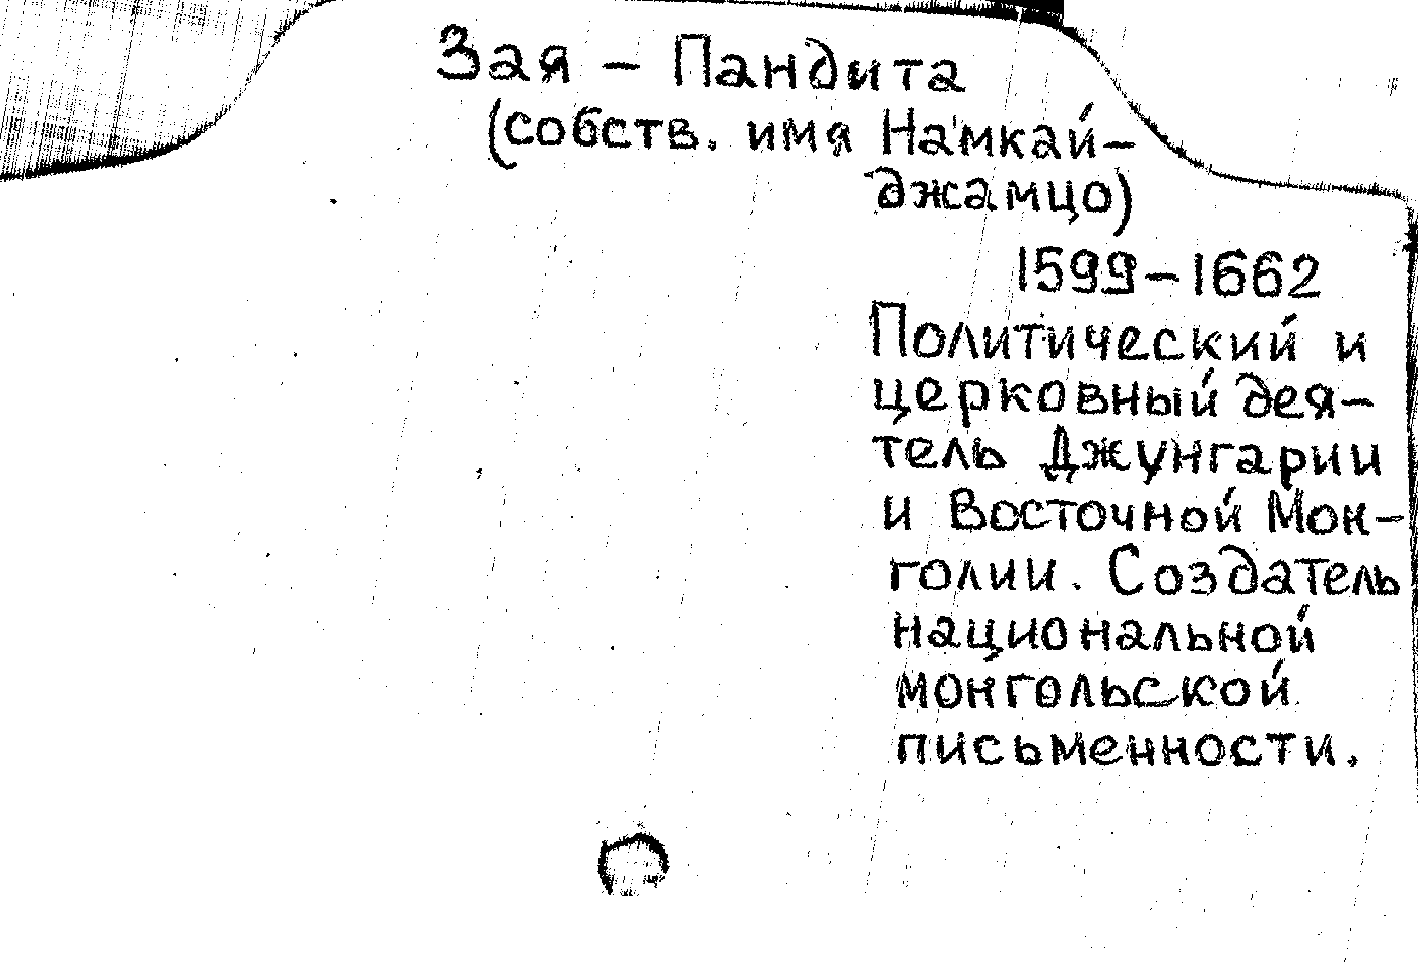 Зая – Пандита
(собств. имя Намкай-
джамцо)
1599–1662
Политический и
церковный дея-
тель Джунгарии
и Восточной Мон-
голии. Создатель
национальной
монгольской
письменности.